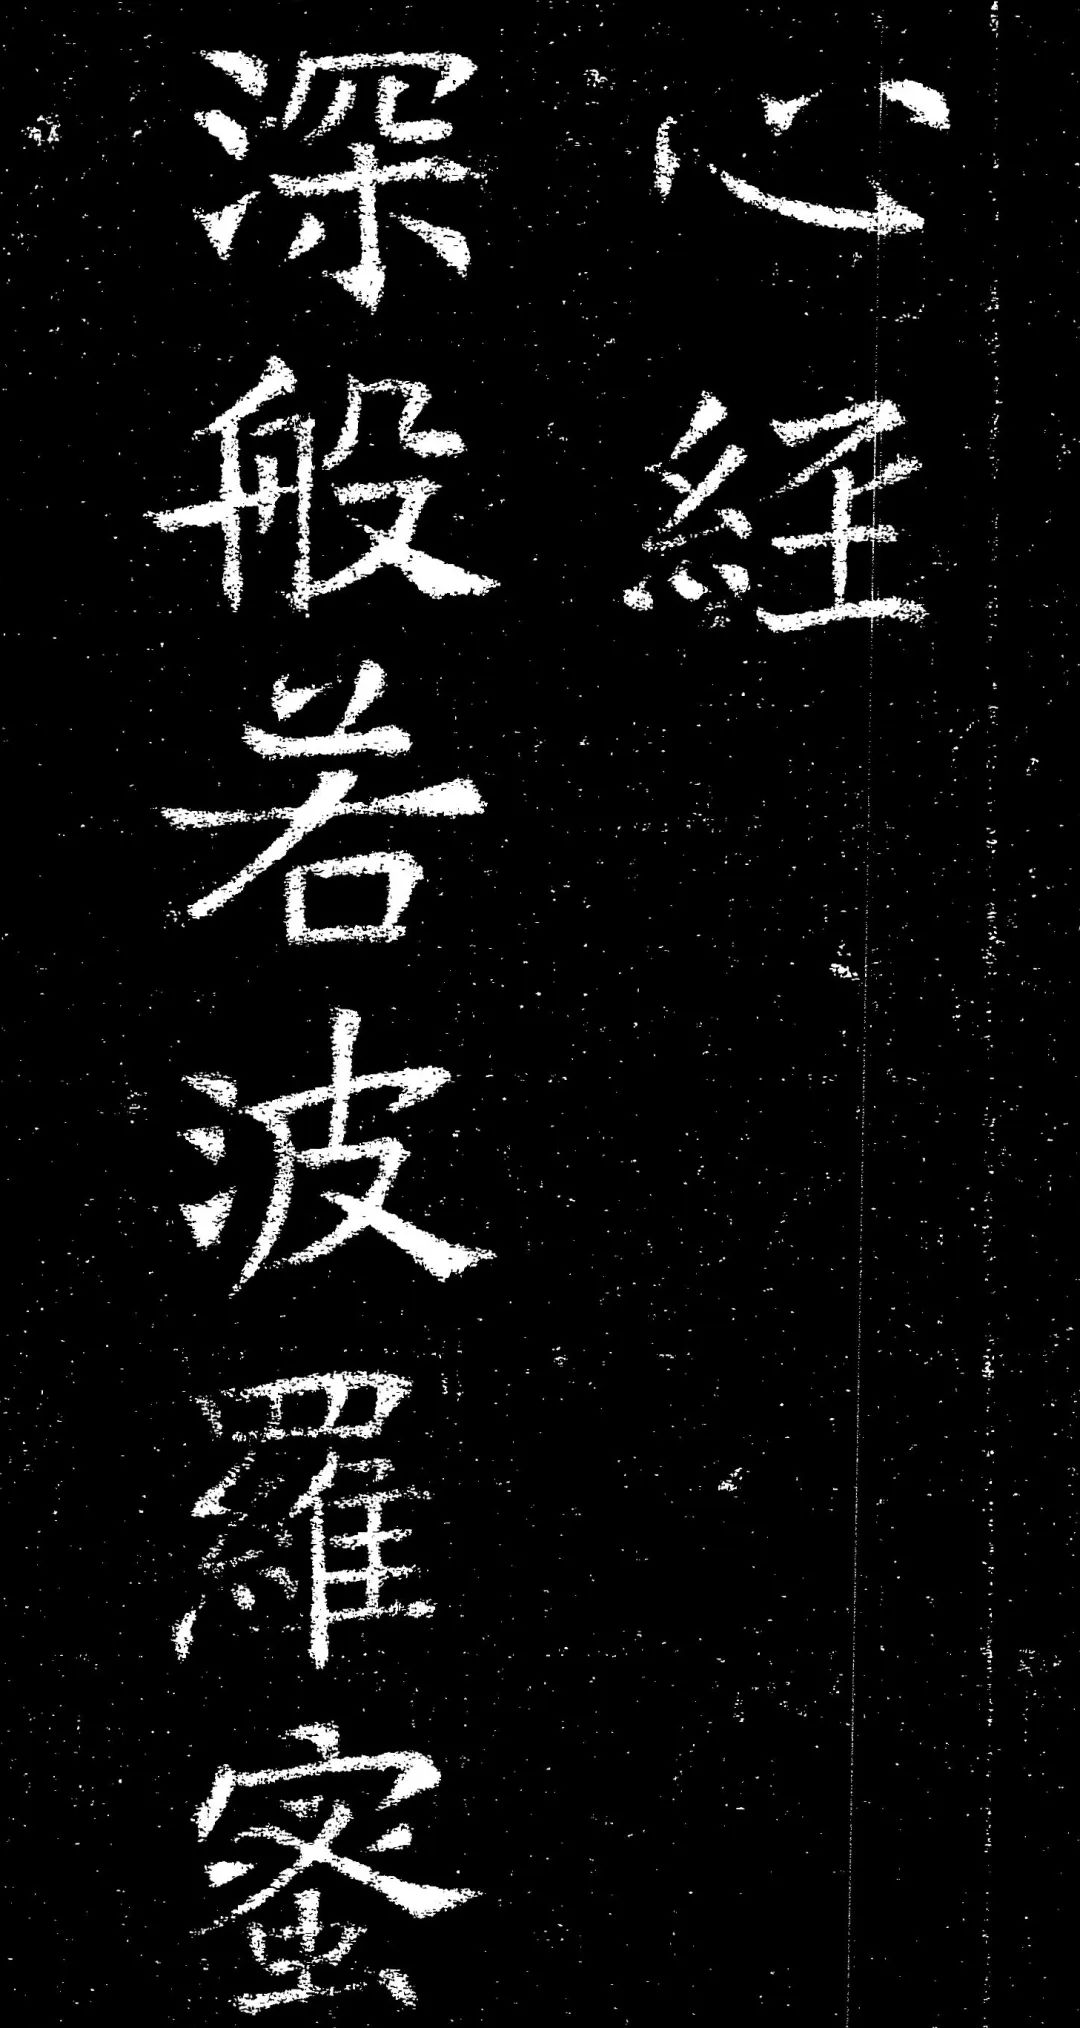 心經
深般若波羅蜜